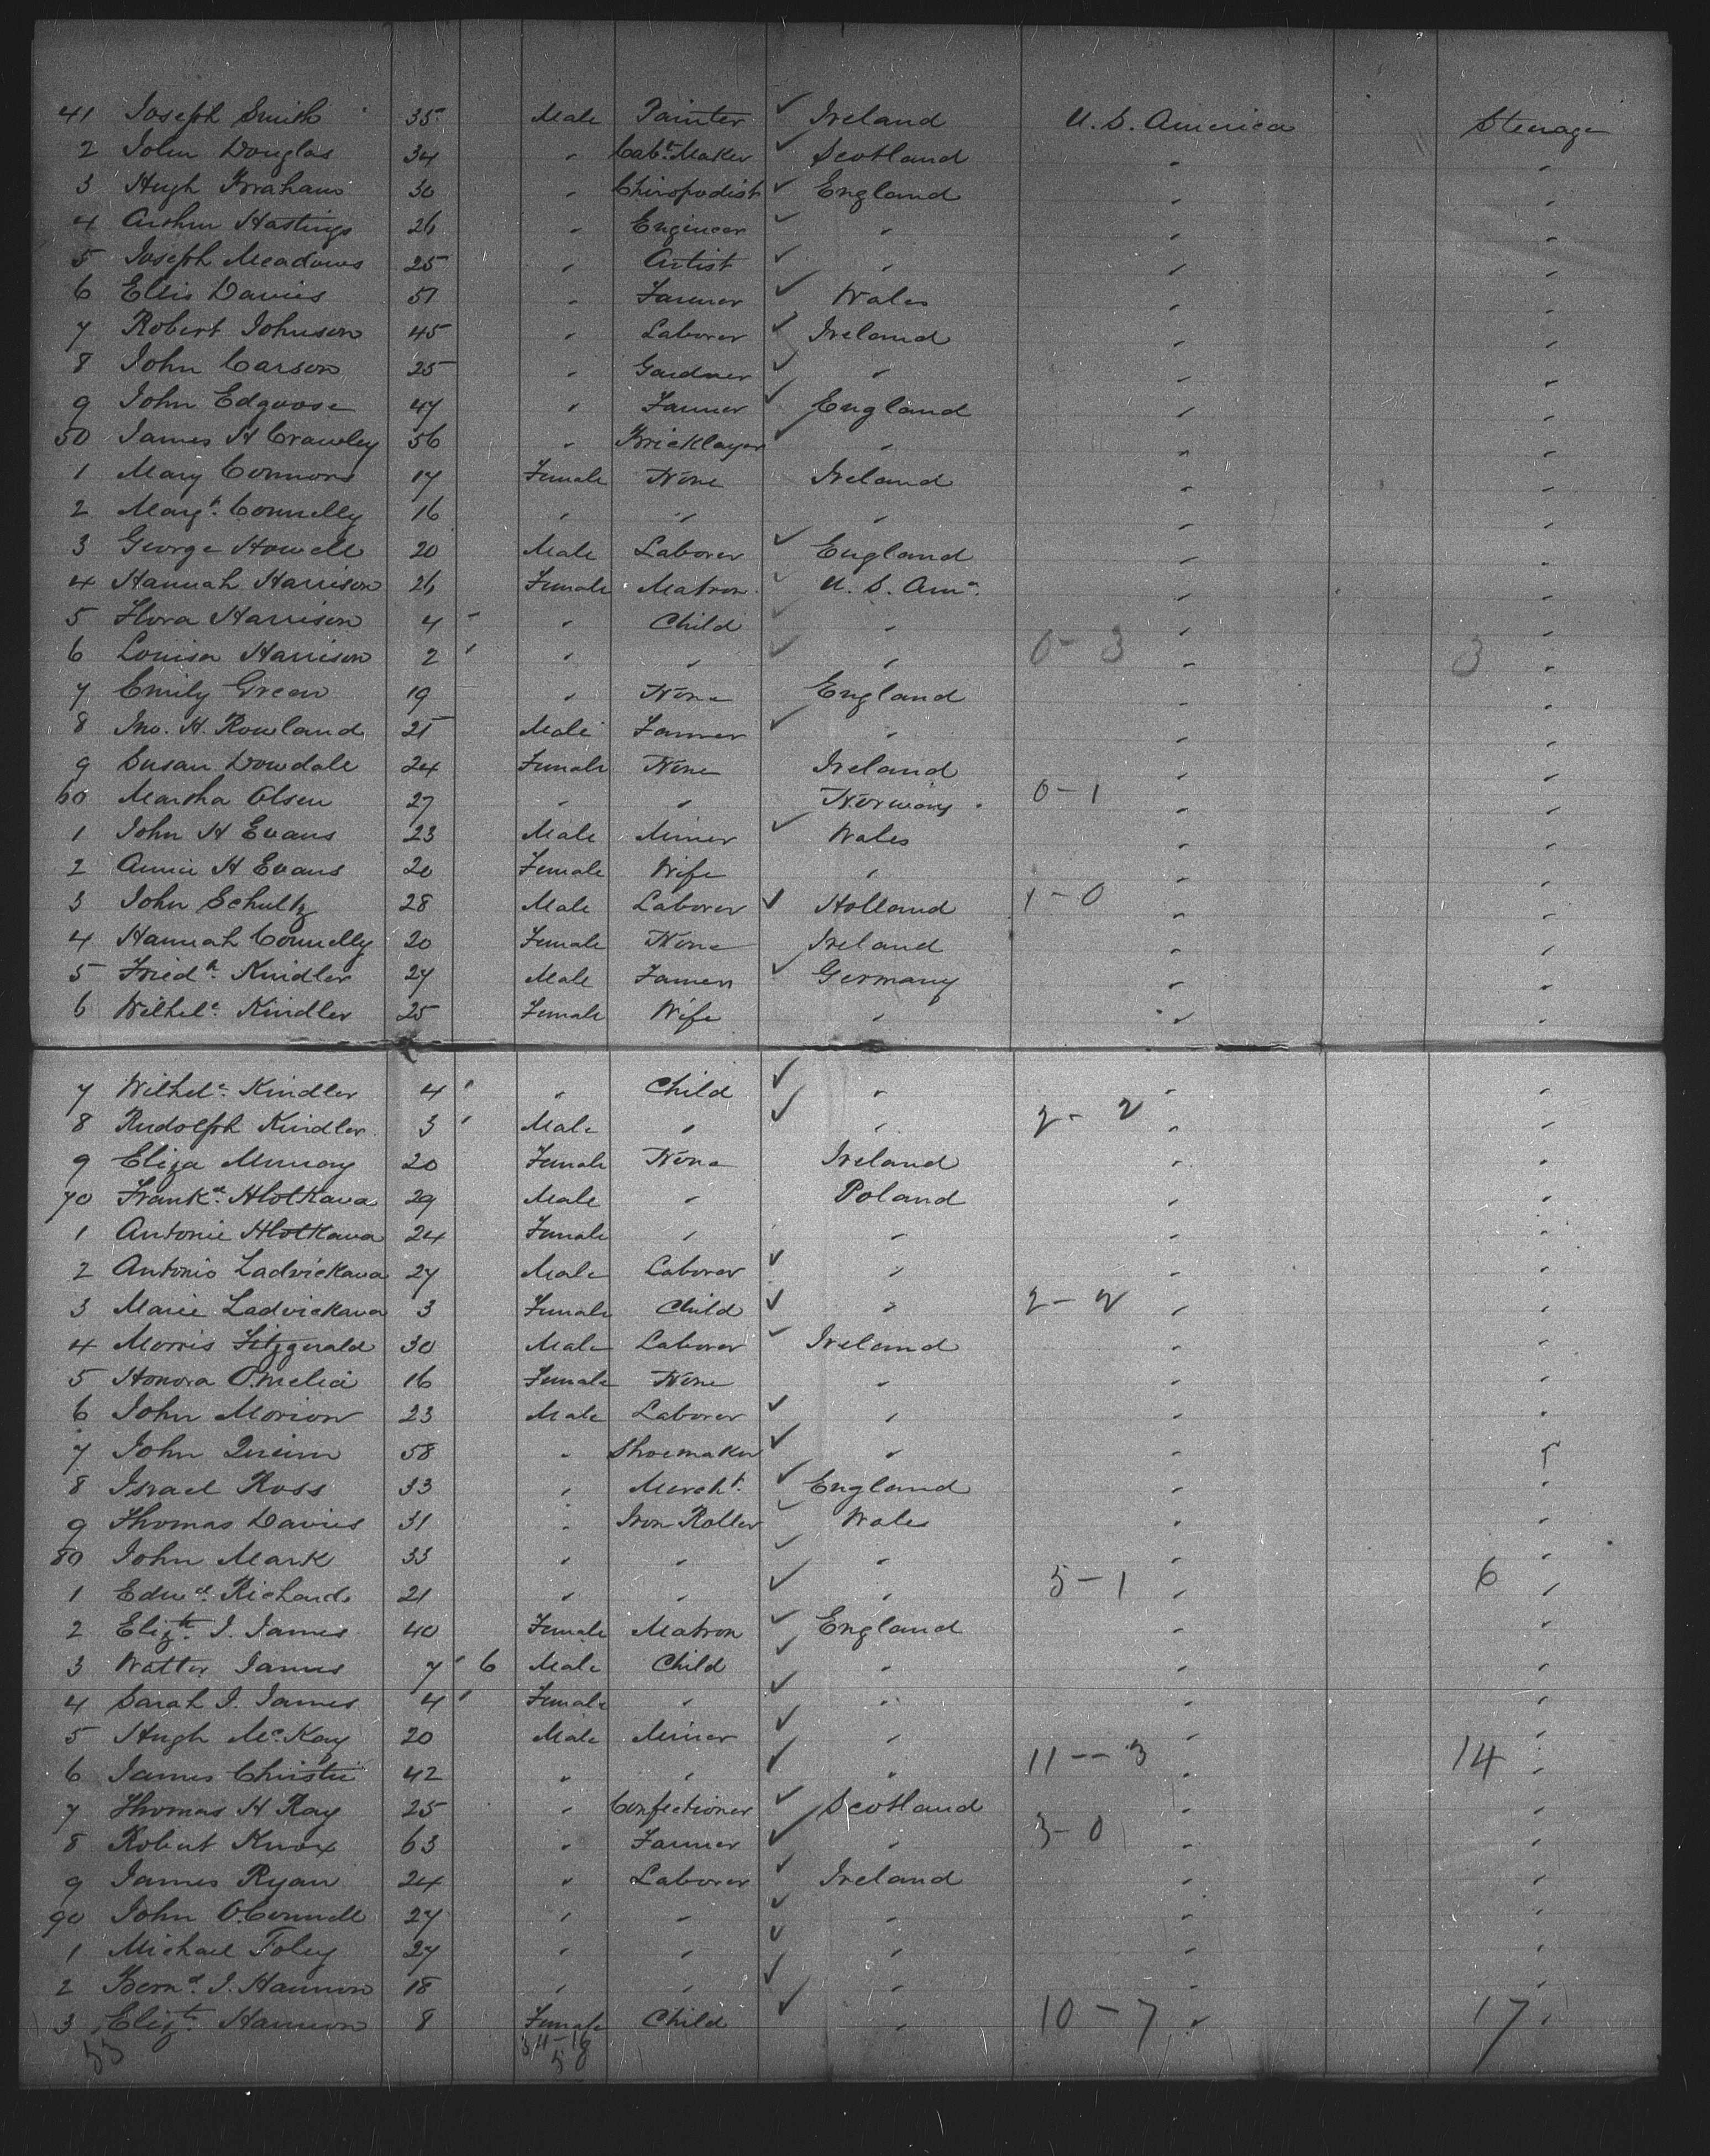 41 Joseph Smith 35 Male Painter ✓ Ireland U. S. America Steerage
2 John Douglas 34 " Cabt. Maker ✓ Scotland " "
3 Hugh Graham 30 " Chiropodist ✓ England " "
4 Arthur Hastings 26 " Engineer ✓ " " "
5 Joseph Meadows 25 " Artist ✓ " " "
6 Ellis Davies 51 " Farmer ✓ Wales " "
7 Robert Johnson 45 " Laborer ✓ Ireland " "
8 John Carson 25 " Gardner ✓ " " "
9 John Edgoose 47 " Farmer ✓ England " "
50 James H Crawley 56 " Bricklayer ✓ " " "
1 Mary Connors 17 Female None Ireland " "
2 Margt. Connelly 16 " " " " "
3 George Howell 20 Male Laborer ✓ England " "
4 Hannah Harrison 26 Female Matron ✓ U. S. Ama. " "
5 Flora Harrison 4 " " Child ✓ " " "
6 Louisa Harrison 2 ' " " ✓ " 0-3 " 3 "
7 Emily Green 19 " None England " "
8 Jno. H. Rowland 25 Male Farmer ✓ " " "
9 Susan Dowdale 24 Female None Ireland " "
60 Martha Olsen 27 " " Norway 0-1 " "
1 John H Evans 23 Male Miner ✓ Wales " "
2 Annie H Evans 20 Female Wife " " "
3 John Schultz 28 Male Laborer ✓ Holland 1-0 " "
4 Hannah Connelly 20 Female None Ireland " "
5 Friedh. Kindler 27 Male Farmer ✓ Germany " "
6 Wilhele. Kindler 25 Female Wife " " "
7 Wilhele. Kindler 4 ' " Child ✓ " " "
8 Rudolph Kindler 3 ' Male " ✓ " 2-2 " "
9 Eliza Murray 20 Female None Ireland " "
70 Frankd. Hlotkava 29 Male " Poland " "
1 Antonie Hlotkava 24 Female " " " "
2 Antonio Ladvickava 27 Male Laborer ✓ " " "
3 Marie Ladvickava 3 Female Child ✓ " 2-2 " "
4 Morris Fitzgerald 30 Male Laborer ✓ Ireland " "
5 Honora O'melia 16 Female None " " "
6 John Morion 23 Male Laborer ✓ " " "
7 John Quinn 58 " Shoemaker ✓ " " "
8 Israel Ross 33 " Mercht. ✓ England " "
9 Thomas Davies 31 " Iron Roller ✓ Wales " "
80 John Mark 33 " " ✓ " " "
1 Edwd. Richards 21 " " ✓ " 5-1 " 6 "
2 Elizth. J. James 40 Female Matron ✓ England " "
3 Walter James 7 ' 6 Male Child ✓ " " "
4 Sarah J. James 4 ' Female " ✓ " " "
5 Hugh McKay 20 Male Miner ✓ " " "
6 James Christie 42 " " ✓ " 11--3 " 14 "
7 Thomas H Ray 25 " Confectioner ✓ Scotland " "
8 Robert Knox 63 " Farmer ✓ " 3-0 " "
9 James Ryan 24 " Laborer ✓ Ireland " "
90 John O'Connell 27 " " ✓ " " "
1 Michael Foley 27 " " ✓ " " "
2 Bernd. J. Hannon 18 " " ✓ " " "
3 Elizth. Hannon 8 Female Child ✓ " 10-7 " 17 "
53